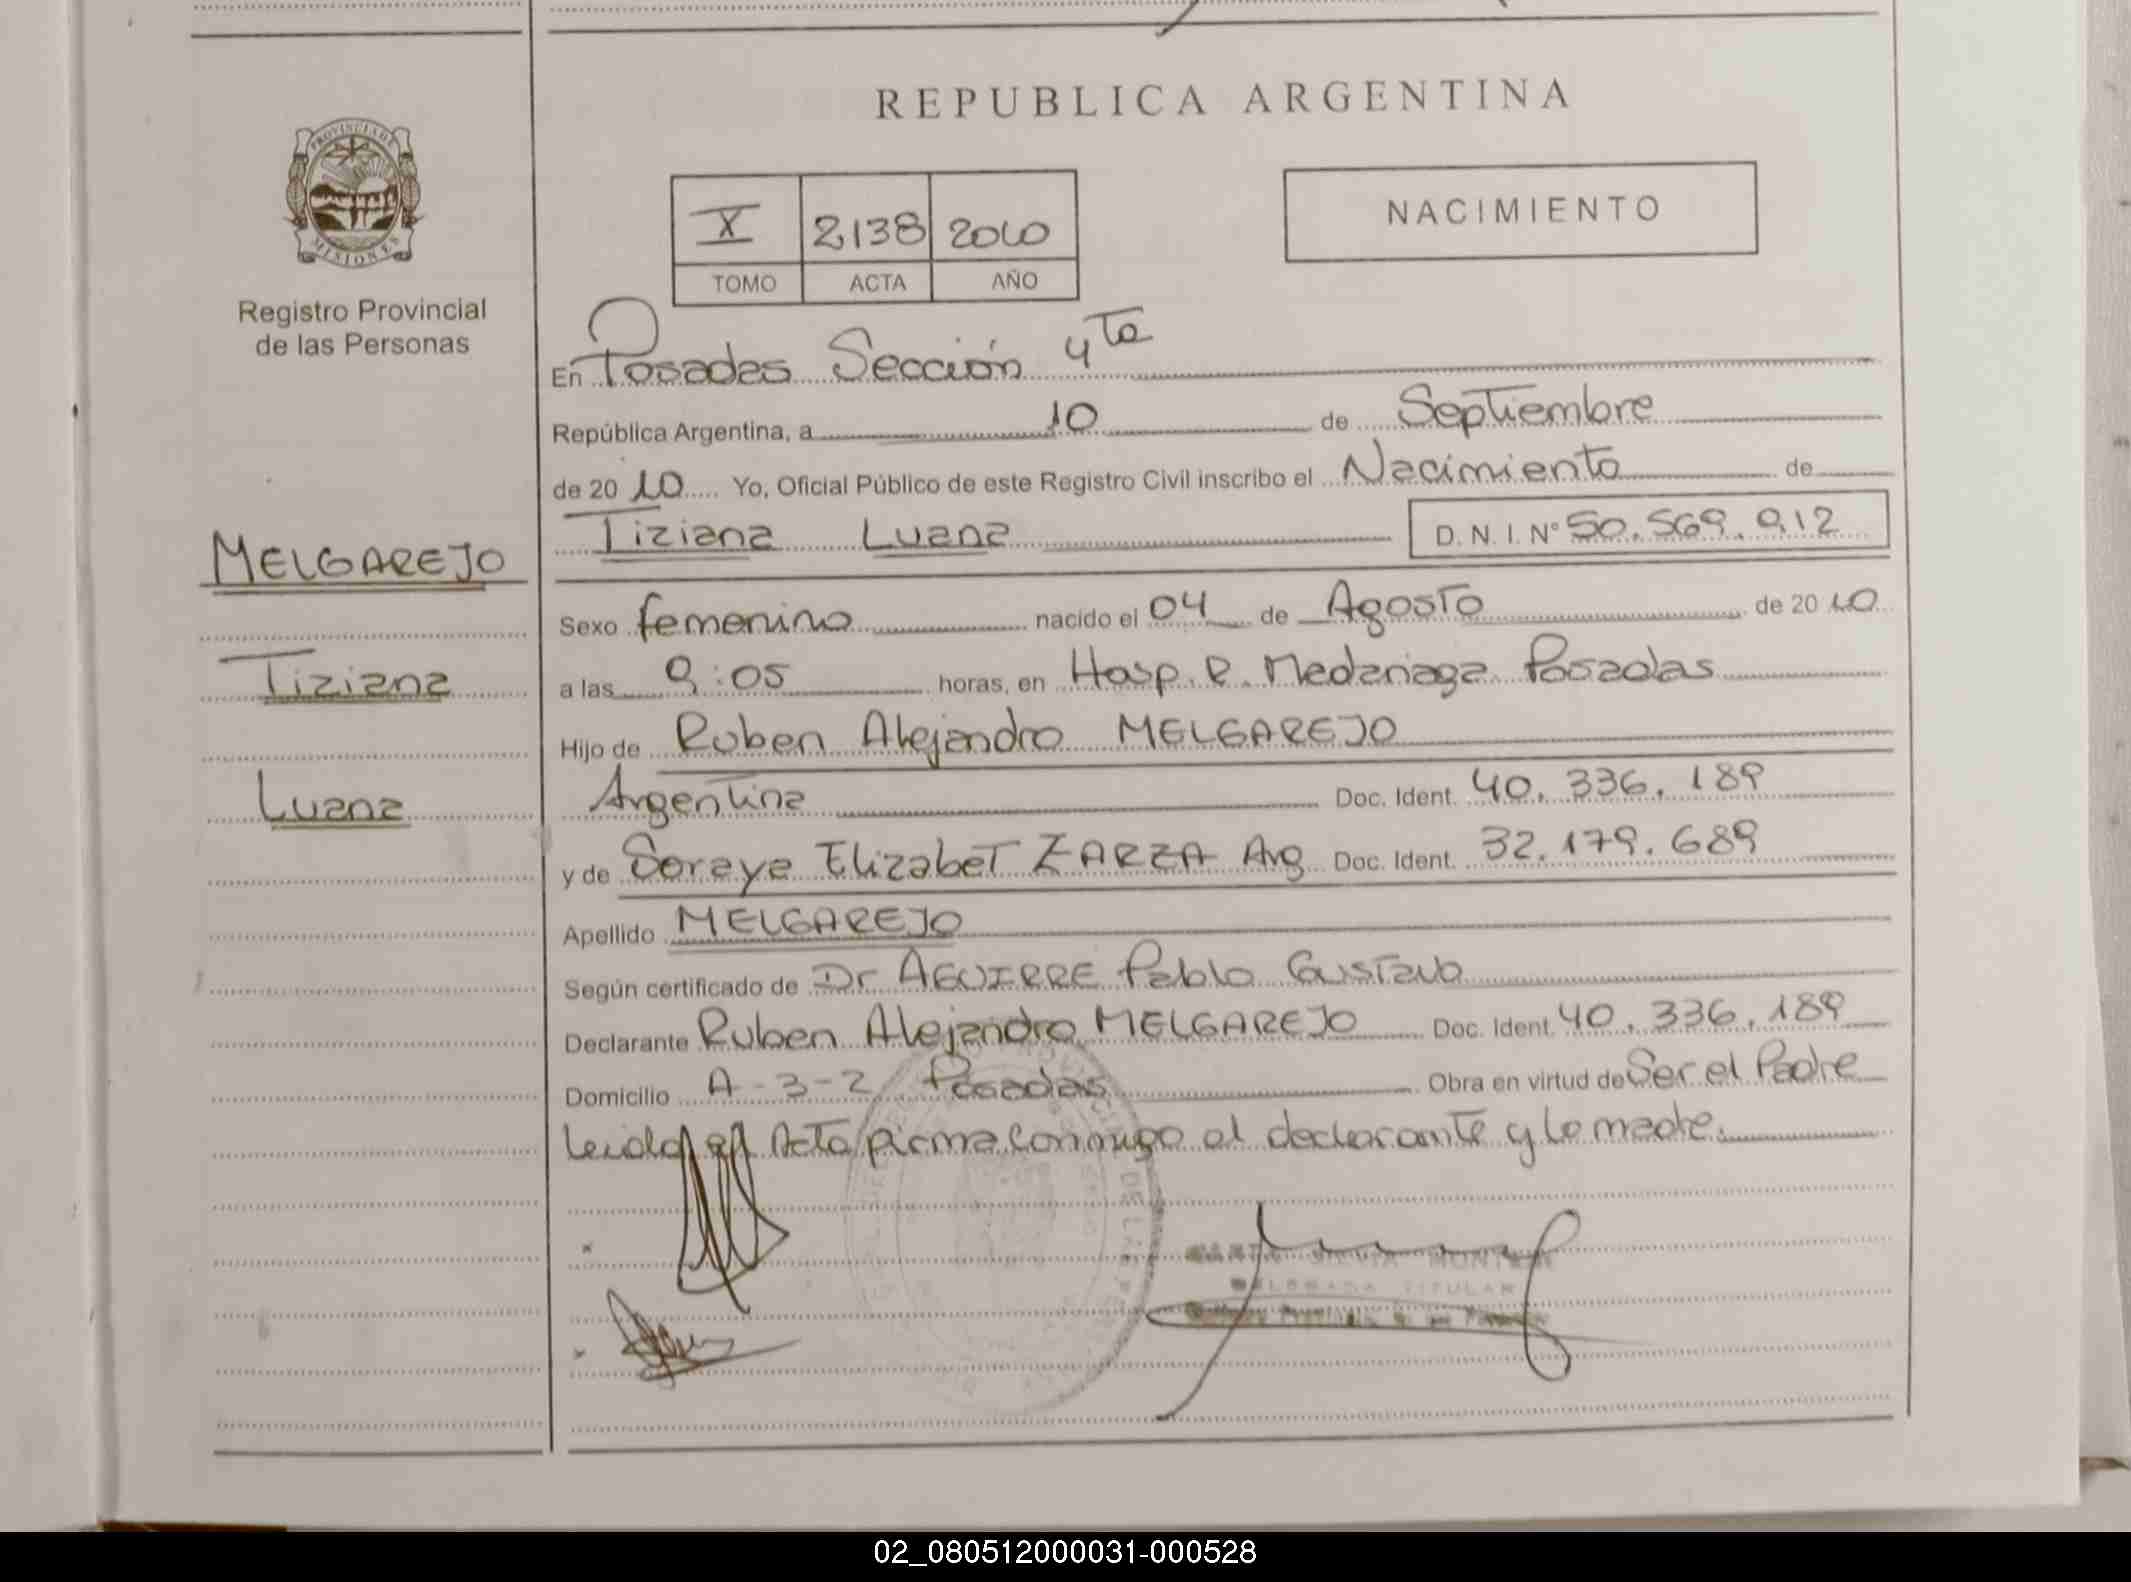 REPUBLICA ARGENTINA
PROVINCIA DE
MISIONES
Registro Provincial
de las Personas
X 2138 2010
TOMO ACTA AÑO
NACIMIENTO
En Posadas Sección 4ta
República Argentina, a 10 de Septiembre
de 2010 Yo, Oficial Público de este Registro Civil inscribo el Nacimiento de
Tiziana Luana D. N. I. N° 50.569.912
MELGAREJO
Tiziana
Luana
Sexo femenino nacido el 04 de Agosto de 2010
a las 9:05 horas, en Hosp. R. Madariaga Posadas
Hijo de Ruben Alejandro MELGAREJO
Argentina Doc. Ident. 40.336.189
y de Soraya Elizabet ZARZA Arg Doc. Ident. 32.179.689
Apellido MELGAREJO
Según certificado de Dr AGUIRRE Pablo Gustavo
Declarante Ruben Alejandro MELGAREJO Doc. Ident. 40.336.189
Domicilio A-3-2 Posadas Obra en virtud de Ser el Padre
leida el Acta firma conmigo el declarante y la madre.
DELEGADA TITULAR
02_080512000031-000528